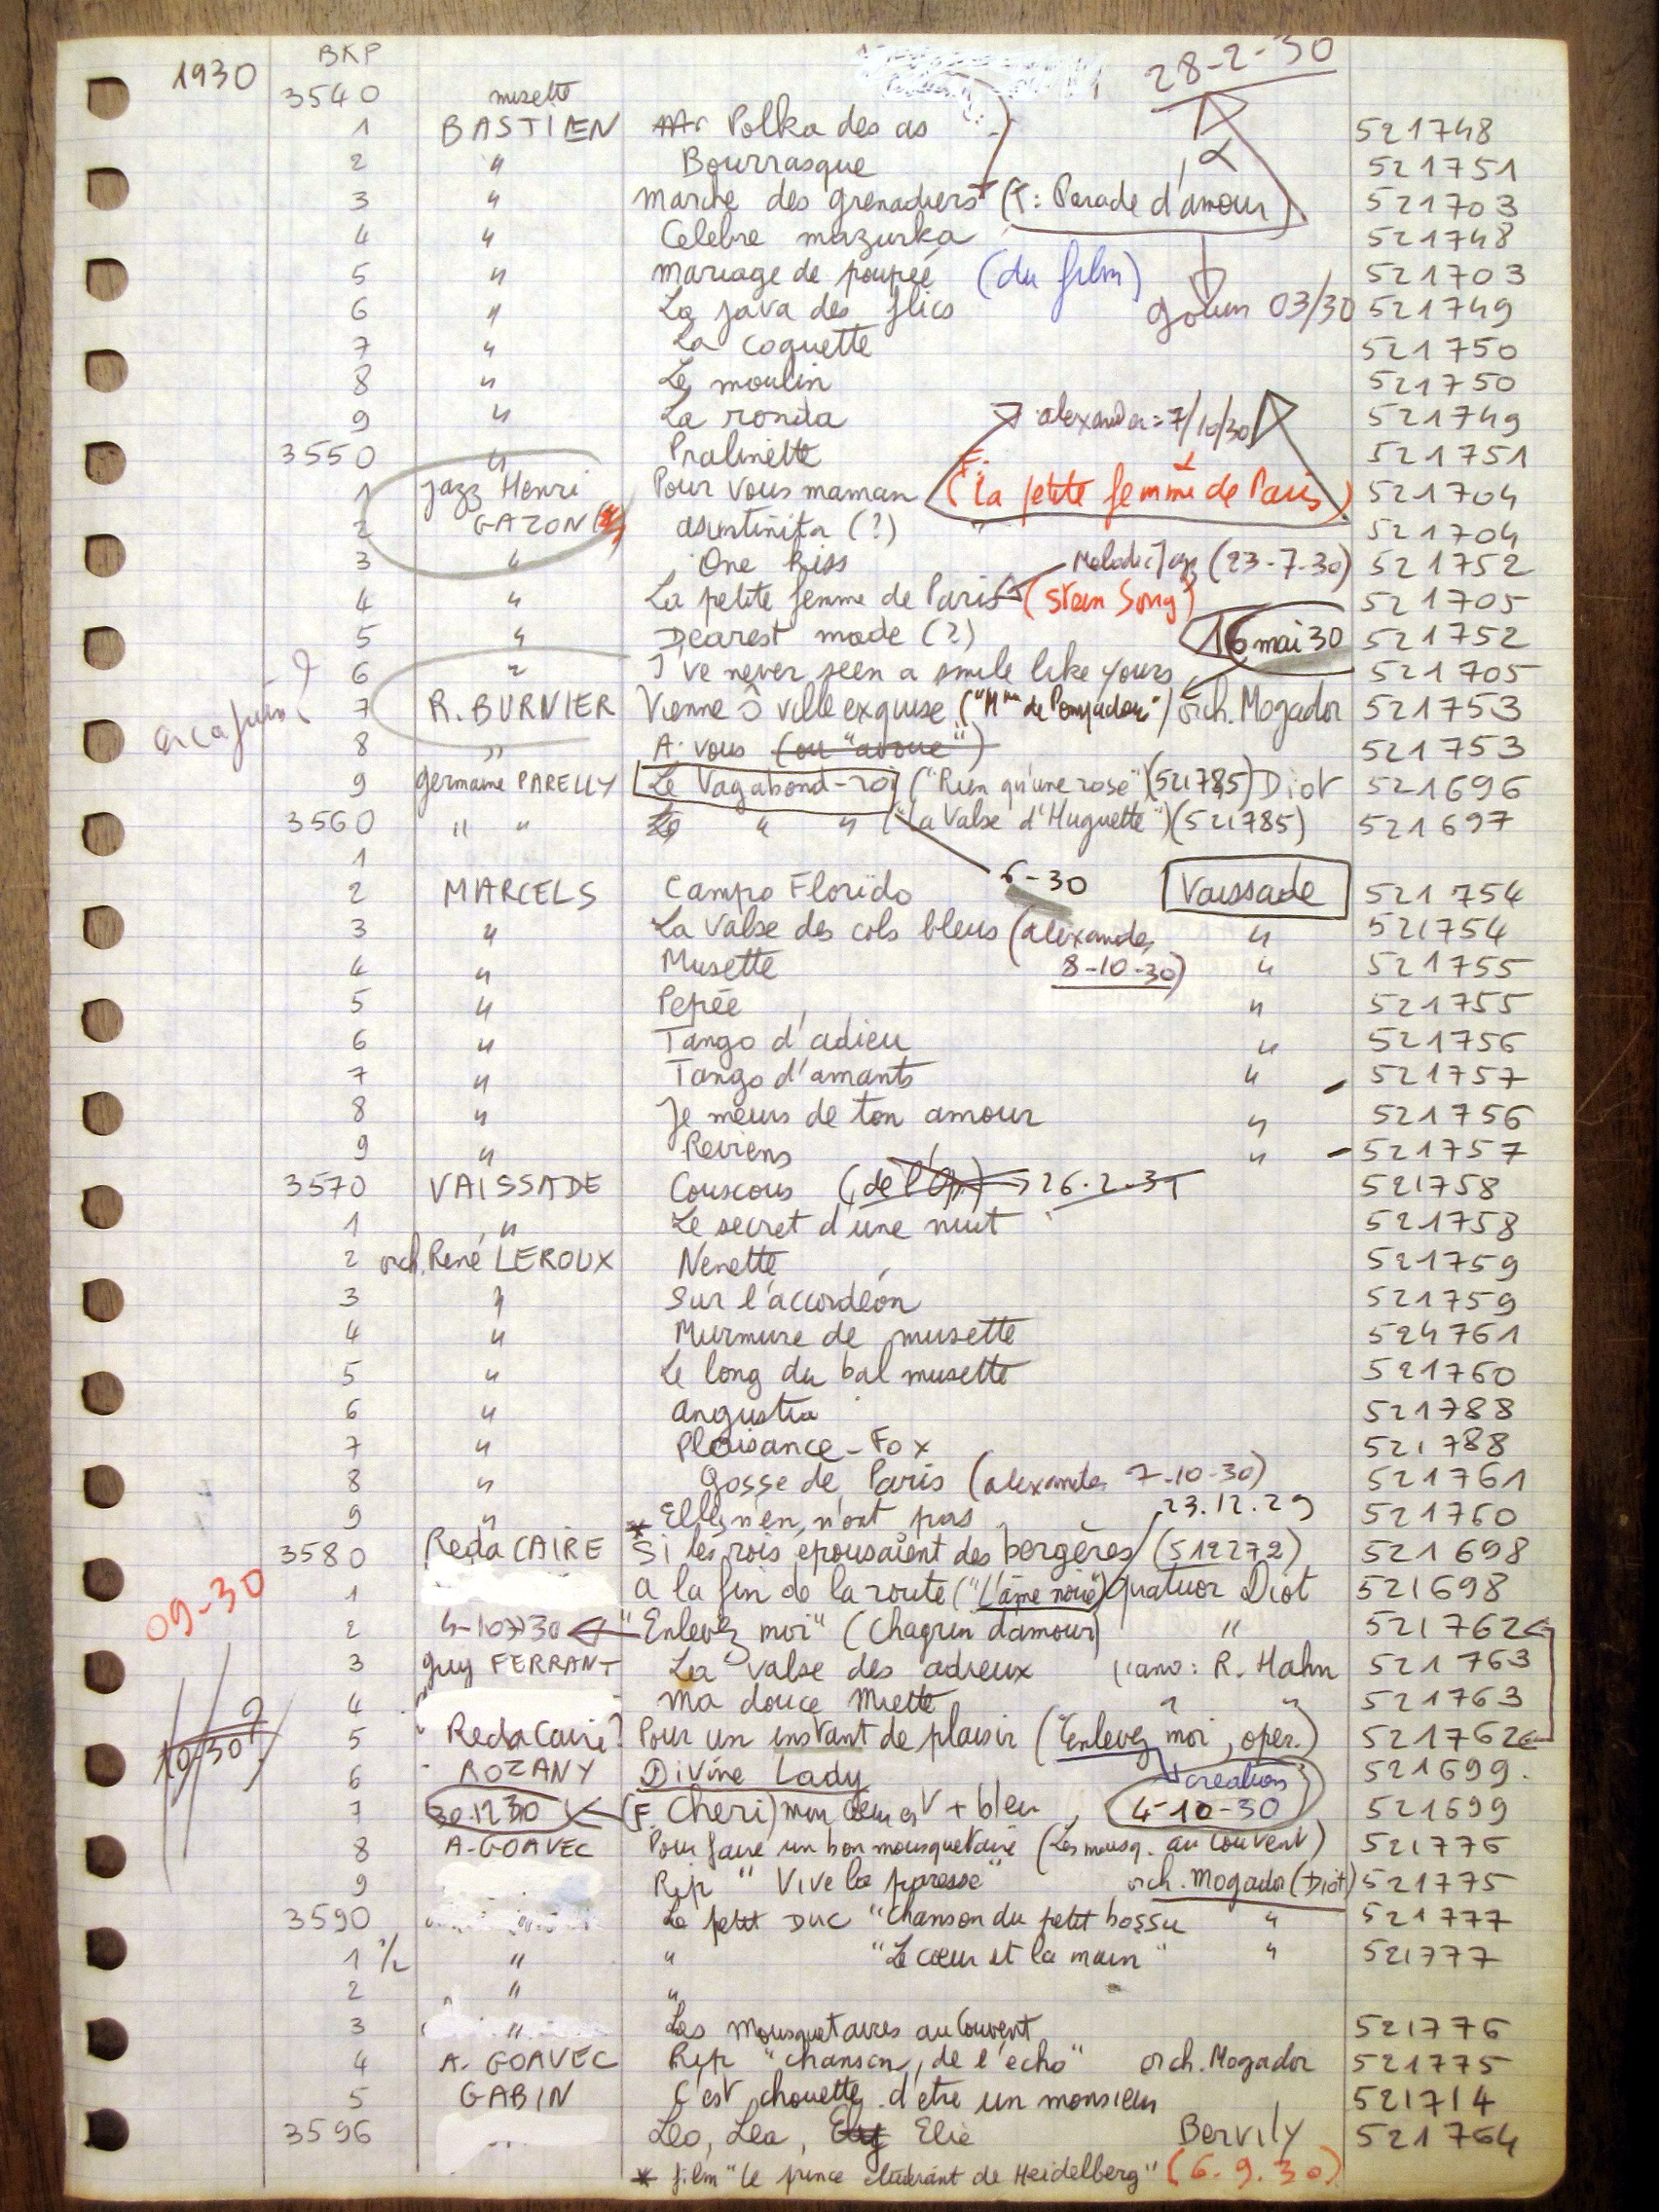 1930 BKP 28-2-30
3540 musette
1 BASTIEN Polka des as 521748
2 " Bourrasque 521751
3 " marche des grenadiers (T: Parade d'amour) 521703
4 " Celebre mazurka 521748
5 " mariage de poupée (du film) 521703
6 " La java des flics 03/30 521749
7 " La coquette 521750
8 " Le moulin 521750
9 " La ronda alexander = 7/10/30 521749
3550 " Pralinette 521751
1 Jazz Henri Pour vous maman (F. La petite femme de Paris) 521704
2 GAZON (?) " 521704
3 " One kiss (23-7-30) 521752
4 " La petite femme de Paris (Stein Song) 521705
5 " Dearest made (?) 16 mai 30 521752
6 " I've never seen a smile like yours 521705
7 R. BURNIER Vienne ô ville exquise ("Mme de Pompadour") orch. Mogador 521753
8 " A vous (ou "avoue") 521753
9 germaine PARELLY Le Vagabond-roi ("Rien qu'une rose") (521785) Diot 521696
3560 " " Le " " ("la Valse d'Huguette") (521785) 521697
1
6-30
2 MARCELS Campo Florido Vaissade 521754
3 " La valse des cols bleus (alexander " 521754
4 " Musette 8-10-30) " 521755
5 " Pepée " 521755
6 " Tango d'adieu " 521756
7 " Tango d'amants " 521757
8 " Je meurs de ton amour " 521756
9 " Reviens " 521757
3570 VAISSADE Couscous 26.2.31 521758
1 " Le secret d'une nuit 521758
2 orch. René LEROUX Nenette 521759
3 " Sur l'accordéon 521759
4 " Murmure de musette 521761
5 " Le long du bal musette 521760
6 " Angustia 521788
7 " Plaisance-Fox 521788
8 " Gosse de Paris (alexander 7-10-30) 521761
9 " * Elles n'en n'ont pas 23.12.29 521760
3580 Reda CAIRE Si les rois epousaient des bergères (512272) 521698
09-30
1 a la fin de la route ("L'âme noire") quatuor Diot 521698
2 4-10-30 "Enlevez moi" (Chagrin d'amour) " 521762
3 guy FERRANT La valse des adieux piano: R. Hahn 521763
4 ma douce Miette " " 521763
5 Reda Caire? Pour un instant de plaisir (Enlevez moi, oper.) 521762
10/30?
6 ROZANY Divine Lady création 521699.
7 30.12.30 (F. Cheri) mon cœur est + bleu, 4-10-30 521699
8 A-GOAVEC Pour faire un bon mousquetaire (Les mousq. au Couvent) 521776
9 Rip "Vive la paresse" orch. Mogador (Diot) 521775
3590 " Le petit DUC "Chanson du petit bossu " 521777
1 1/2 " " "Le cœur et la main" " 521777
2 " "
3 " Les Mousquetaires au Couvent 521776
4 A. GOAVEC Rip "chanson, de l'écho" orch. Mogador 521775
5 GABIN C'est chouette d'etre un monsieur 521714
3596 Leo, Lea, Elie Bervily 521764
* film "le prince etudiant de Heidelberg" (6.9.30)